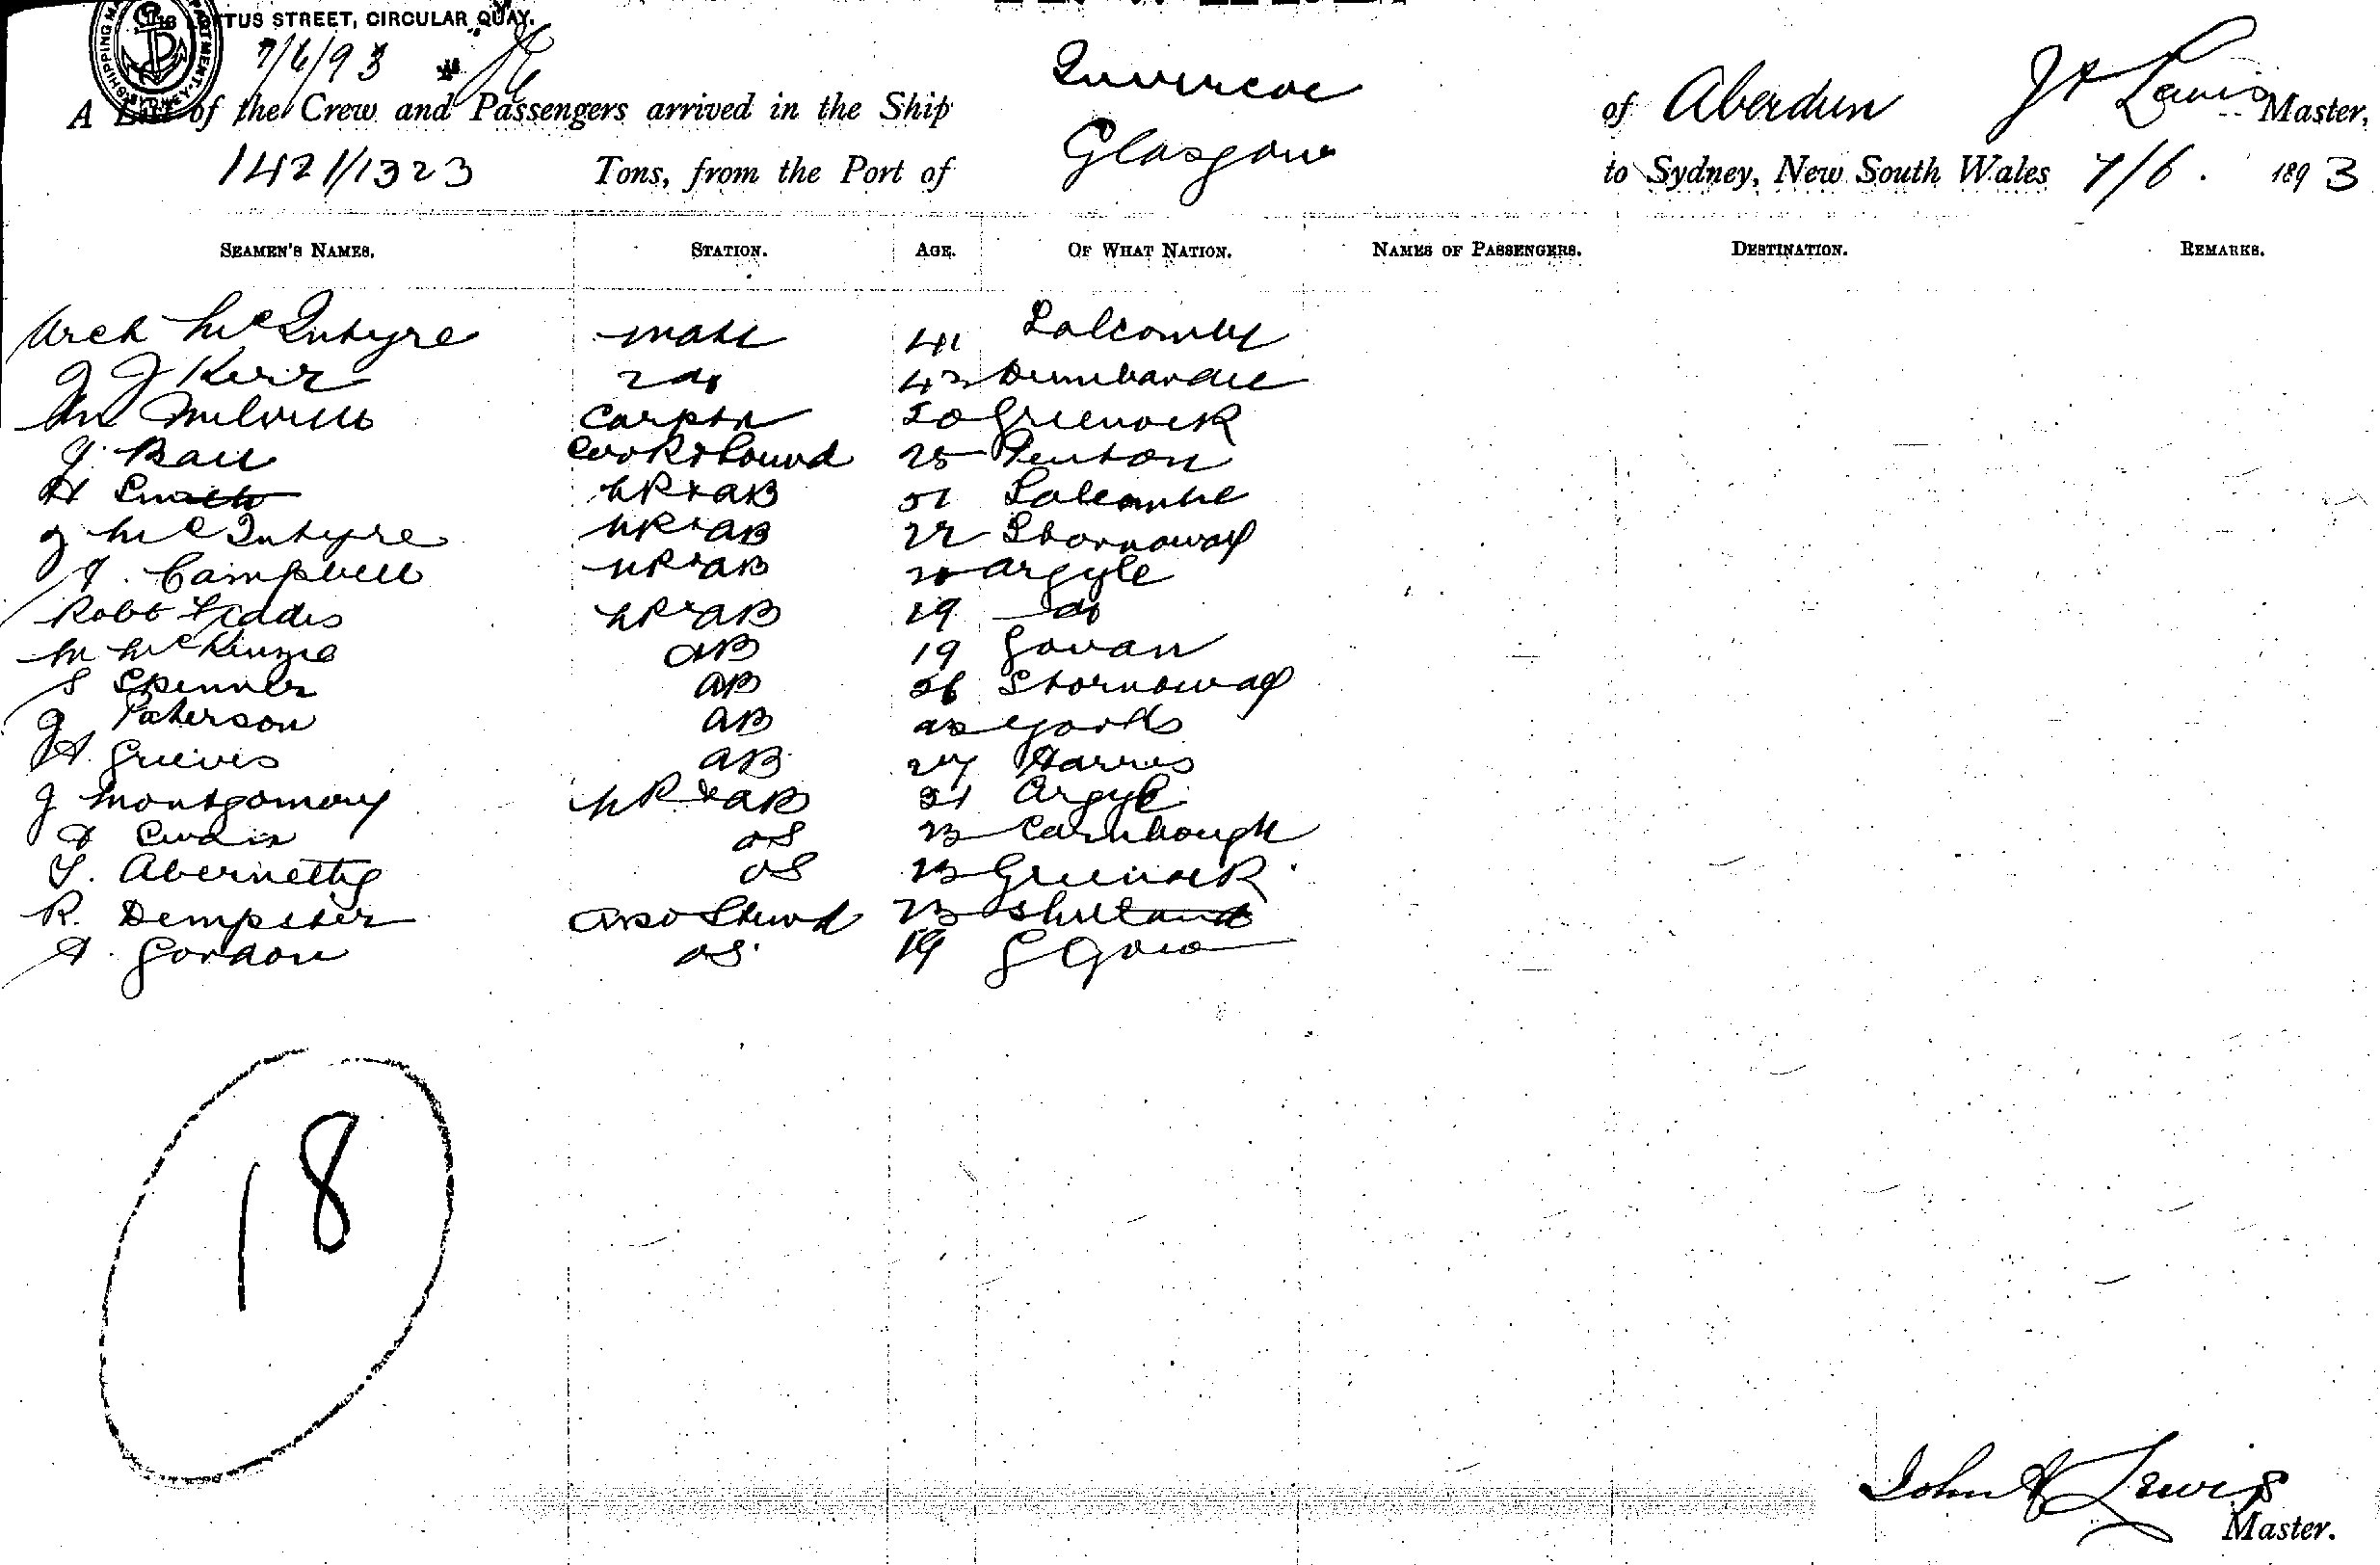 TUS STREET, CIRCULAR QUAY.
7/6/93
A List of the Crew and Passengers arrived in the Ship Invercoe of Aberdeen J A Lewis Master,
1421/1323 Tons, from the Port of Glasgow to Sydney, New South Wales 7/6. 1893
SEAMEN'S NAMES. STATION. AGE. OF WHAT NATION. NAMES OF PASSENGERS. DESTINATION. REMARKS.
Arch McIntyre mate 41 Salcombe
J J Kerr 2 do 43
Carptr 50 Greenock
J. Ball Cook & 25
H Smith & AB 51 Salcombe
J McIntyre & AB 22 Stornoway
J. Campbell & AB 20 Argyle
Robt Fiddes & AB 19 do
M McKenzie AB 19 Govan
S Skinner AB 26 Stornoway
J Paterson AB
A. Grieves AB 27 Harris
J Montgomery & AB 21 Argyle
OS 23
T. Abernethy OS 23 Greenock
R. Dempster Stewd 23 Shetland
A. Gordon OS. 19 G Gow
18
John A Lewis
Master.